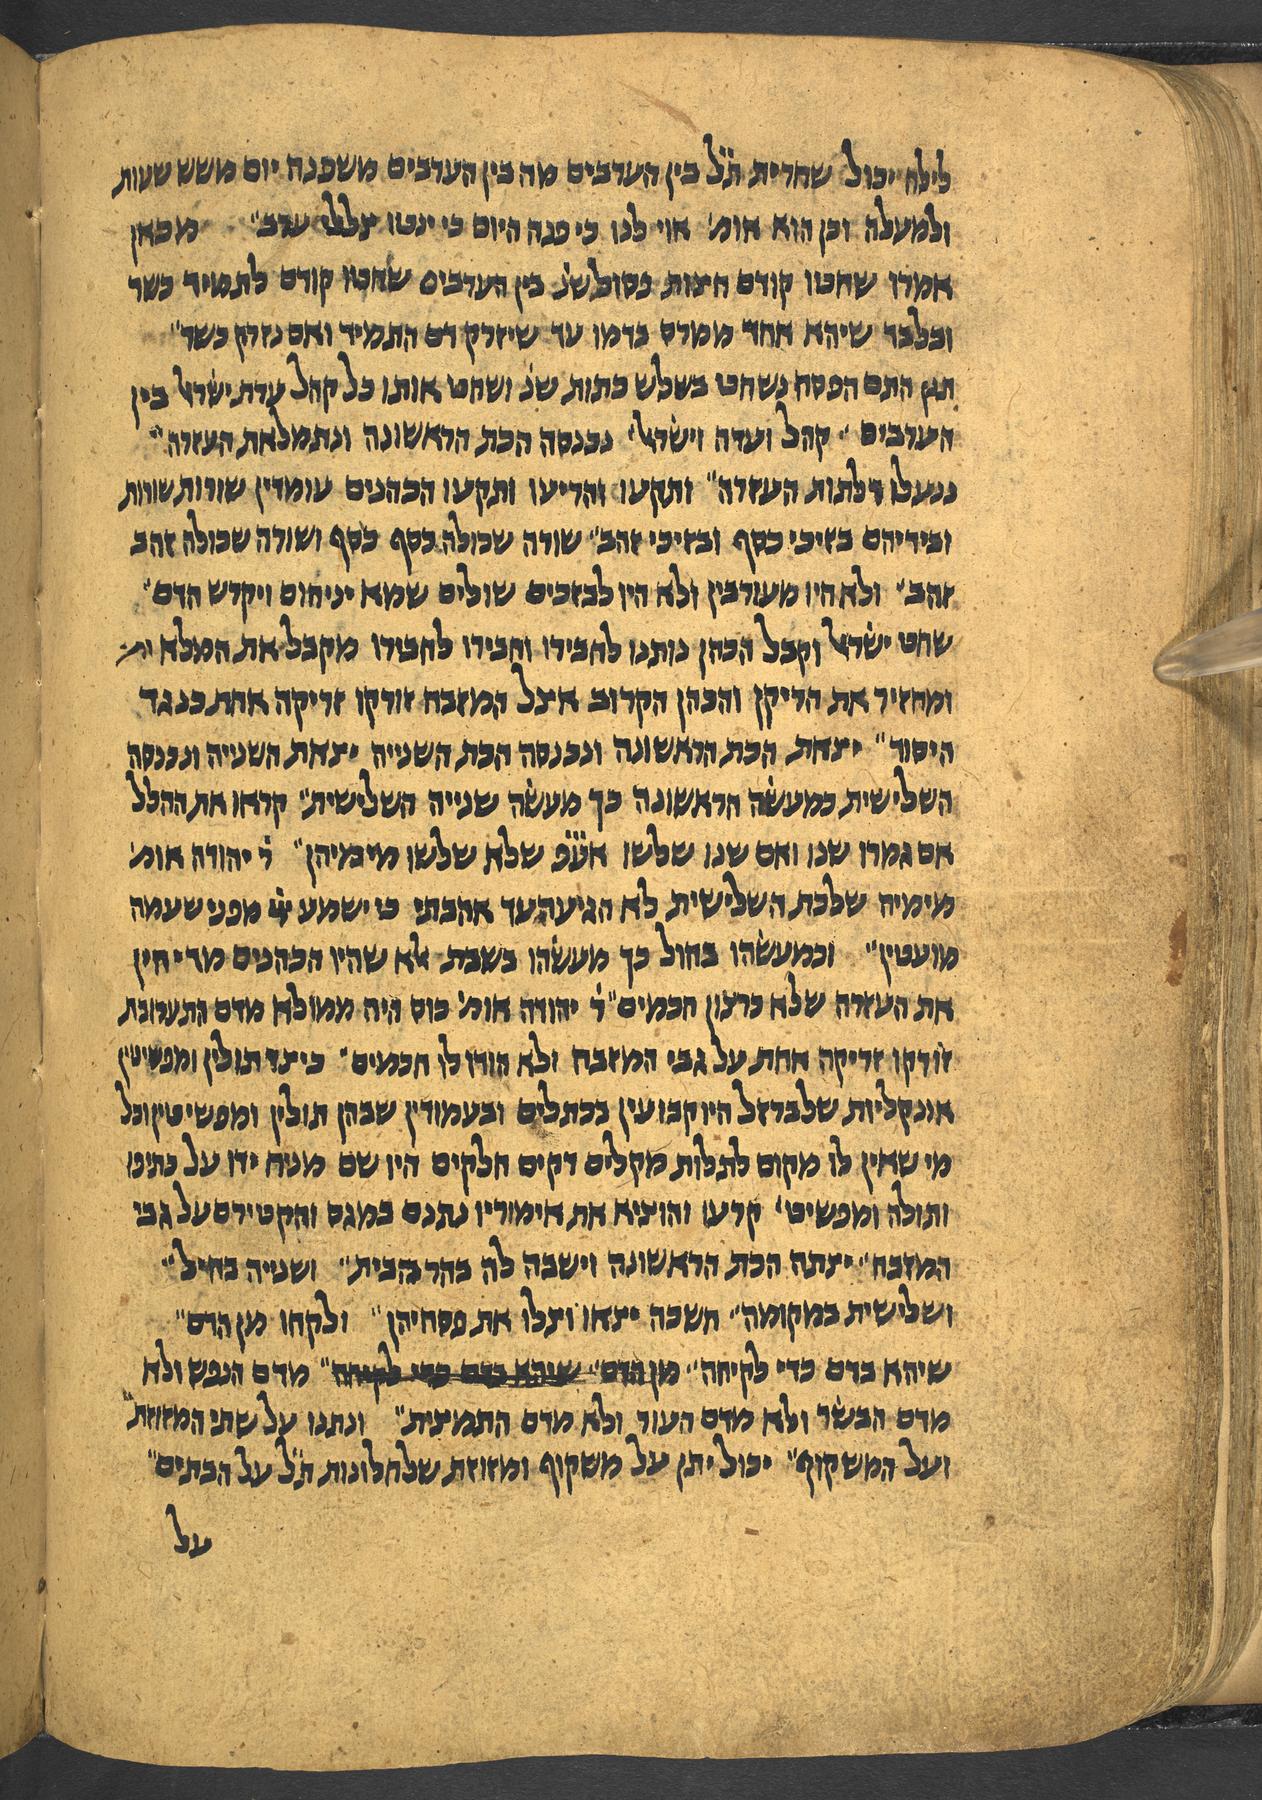 לילה יכול שחרית ת״ל בין הערבים מה בין הערבים משפנה יום משש שעות
ולמעלה וכן הוא אומ׳ אוי לנו כי פנה היום כי ינטו צללי ערב״ מכאן
אמרו שחטו קודם חצות פסול שנ׳ בין הערבים שחטו קודם לתמיד כשר
ובלבד שיהא אחד ממרס בדמו עד שיזרק דם התמיד ואם נזרק כשר״
תנן התם הפסח נשחט בשלש כתות שנ׳ ושחט אותו כל קהל עדת ישראל בין
הערבים ״ קהל ועדה וישראל׳ נכנסה הכת הראשונה ונתמלאת העזרה״
ננעלו דלתות העזרה״ ותקעו והריעו ותקעו הכהנים עומדין שורות שורות
ובידיהם בזיכי כסף ובזיכי זהב״ שורה שכולה כסף כסף ושורה שכולה זהב
זהב״ ולא היו מעורבין ולא היו לבזכים שולים שמא יניחום ויקרש הדם״
שחט ישראל וקבל הכהן נותנו לחבירו וחבירו לחבירו מקבל את המלא
ומחזיר את הריקן והכהן הקרוב אצל המזבח זורקו זריקה אחת כנגד
היסוד״ יצאת הכת הראשונה ונכנסה הכת השנייה יצאת השנייה ונכנסה
השלישית כמעשה הראשונה כך מעשה שנייה השלישית״ קראו את ההלל
אם גמרו שנו ואם שנו שלשו אע״פ שלא שלשו מימיהן״ ר׳ יהודה אומ׳
מימיה שלכת השלישית לא הגיעה עד אהבתי כי ישמע יי׳ מפני שעמה
מועטין״ וכמעשהו בחול כך מעשהו בשבת אלא שהיו הכהנים מדיחין
את העזרה שלא ברצון חכמים״ ר׳ יהודה אומ׳ כוס היה ממולא מדם התערובת
זורקו זריקה אחת על גבי המזבח ולא הודו לו חכמים״ כיצד תולין ומפשיטין
אונקליות שלברזל היו קבועין בכתלים ובעמודין שבהן תולין ומפשיטין וכל
מי שאין לו מקום לתלות מקלים דקים חלקים היו שם מניח ידו על כתיפו
ותולה ומפשיט׳ קרעו והוציא את אימוריו נתנם במגס והקטירם על גבי
המזבח״ יצתה הכת הראשונה וישבה לה בהר הבית״ ושנייה בחיל״
ושלישית במקומה״ חשכה יצאו וצלו את פסחיהן״ ולקחו מן הדם״
שיהא בדם כדי לקיחה״ מן הדם״ שיהא בדם כדי לקיחה״ מדם הנפש ולא
מדם הבשר ולא מדם העור ולא מדם התמצית״ ונתנו על שתי המזוזת״
ועל המשקוף״ יכול יתן על משקוף ומזוזת שלחלונות ת״ל על הבתים״
על